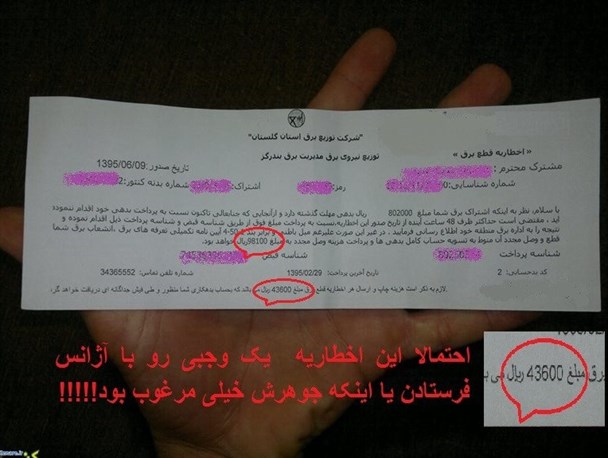 "شرکت توزیع برق استان گلستان"
توزیع نیروی برق مدیریت برق بندرگز
« اخطاریه قطع برق »
تاریخ صدور: 1395/06/09
مشترک محترم :
شماره شناسایی: اشتراک: رمز: شماره بدنه کنتور:
با سلام، نظر به اینکه اشتراک برق شما مبلغ 802000 ریال بدهی مهلت گذشته دارد و ازآنجایی که جنابعالی تاکنون نسبت به پرداخت بدهی خود اقدام ننموده
اید ، مقتضی است حداکثر ظرف 48 ساعت آینده از تاریخ صدور این اخطاریه،نسبت به پرداخت مبلغ فوق از طریق شناسه قبض و شناسه پرداخت ذیل اقدام نموده و
نتیجه را به اداره برق منطقه خود اطلاع رسانی فرمایید . در غیر این صورت علیرغم میل باطنی و برابر بند 4-50 آیین نامه تکمیلی تعرفه های برق ، انشعاب برق شما
قطع و وصل مجدد آن منوط به تسویه حساب کامل بدهی ها و پرداخت هزینه وصل مجدد به مبلغ 98100ریال خواهد بود.
شناسه پرداخت شناسه قبض
کد بدحسابی: 2 تاریخ آخرین پرداخت: 1395/02/29 شماره تلفن تماس: 34365552
لازم به ذکر است هزینه چاپ و ارسال هر اخطاریه قطع برق مبلغ 43600 ریال می باشد که بحساب بدهکاری شما منظور و طی قبض جداگانه ای دریافت خواهد گردید.
برق مبلغ 43600 ریال می
احتمالا این اخطاریه یک وجبی رو با آژانس
فرستادن یا اینکه جوهرش خیلی مرغوب بود!!!!!